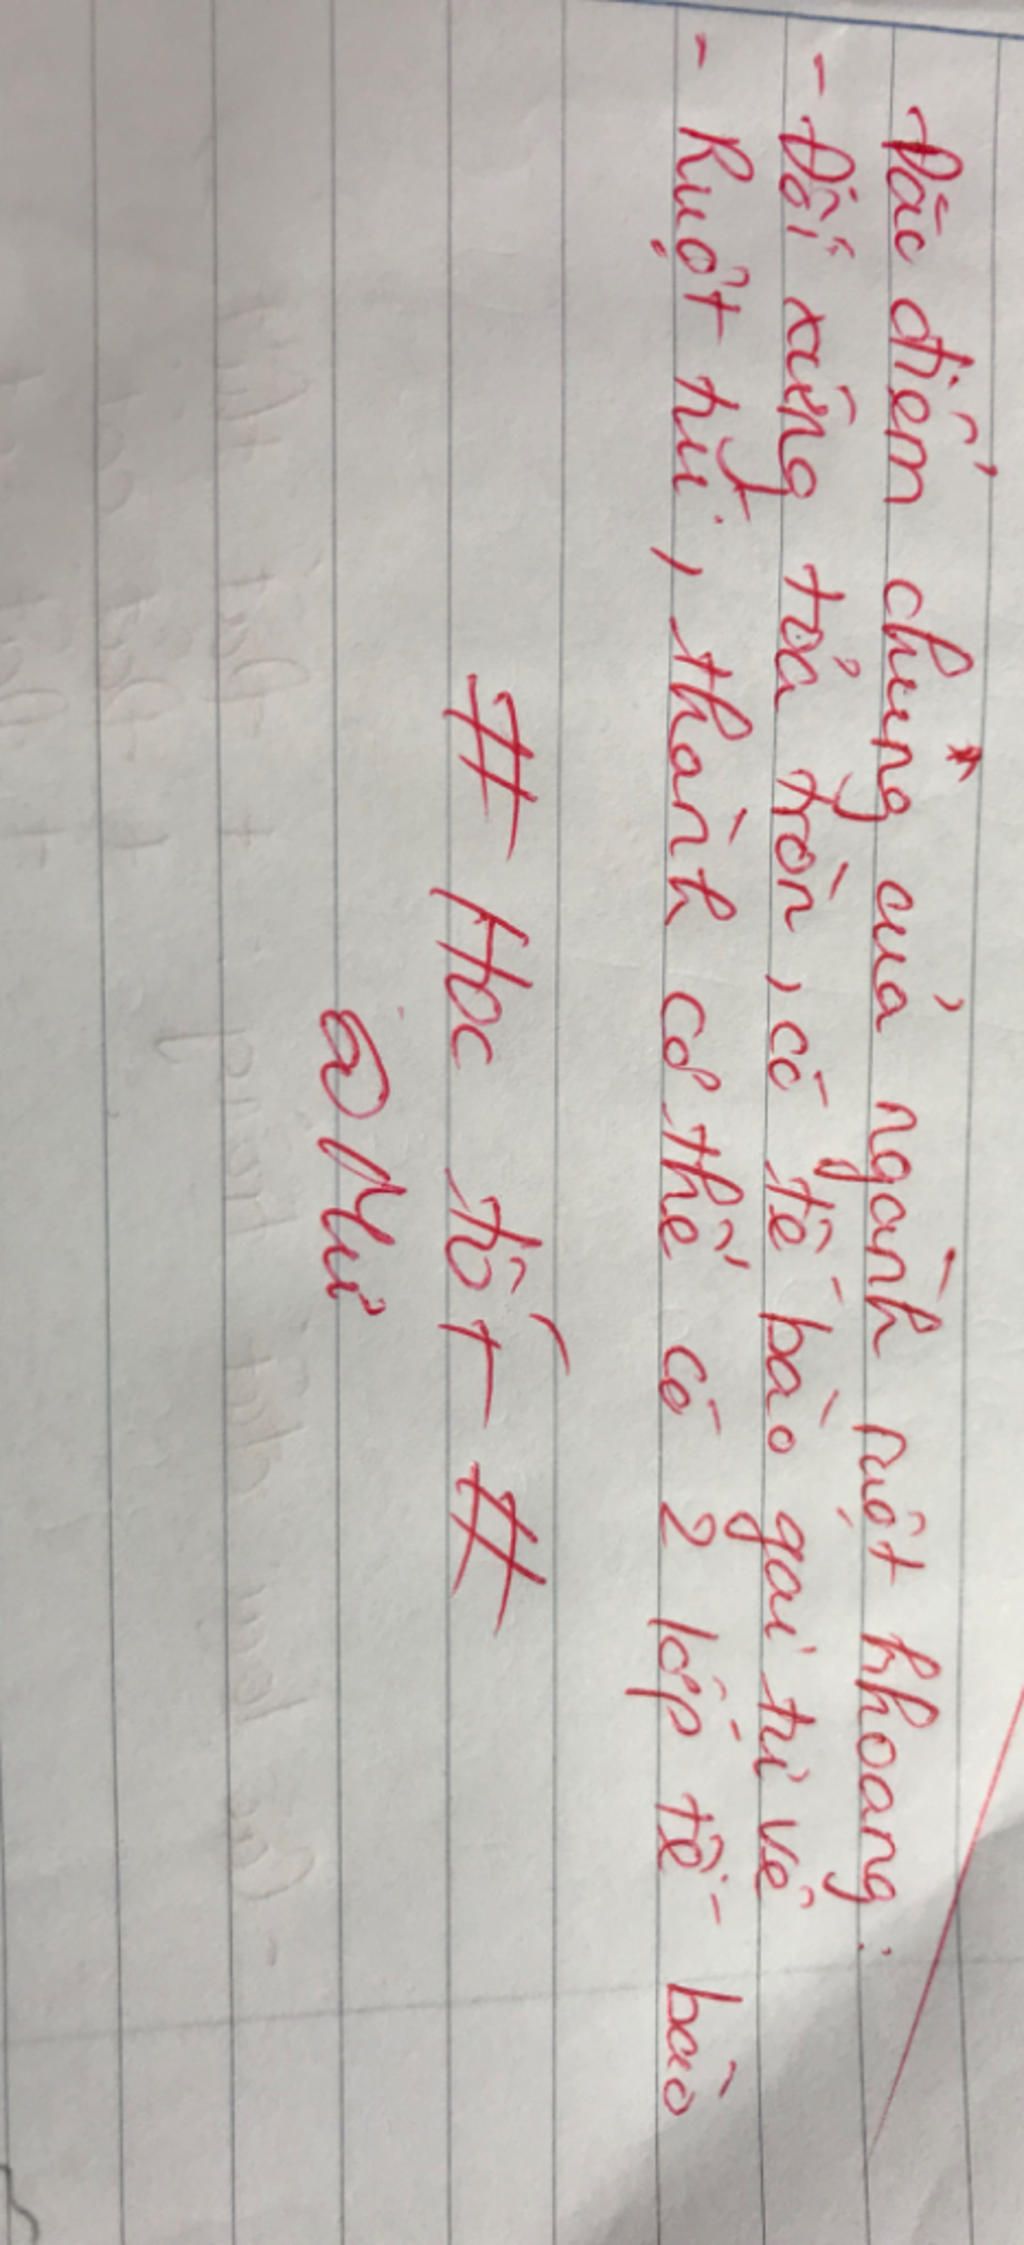 *
Đặc điểm chung của ngành ruột khoang:
- Đối xứng tỏa tròn, có tế bào gai tự vệ
- Ruột túi, thành cơ thể có 2 lớp tế bào
# Học tốt #